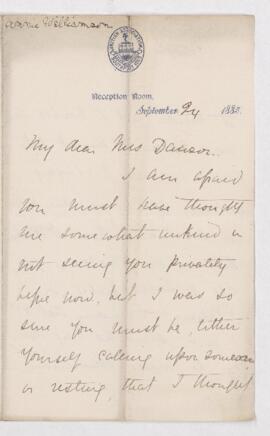 Williamson
BRITISH ASSOCIATION
Reception Room.
September 24 1883.
My dear Mrs Dawson.
I am afraid
you must have thought
me somewhat unkind in
not seeing you privately
before now, but I was so
sure you must be, either
yourself calling upon someone
or resting, that I thought